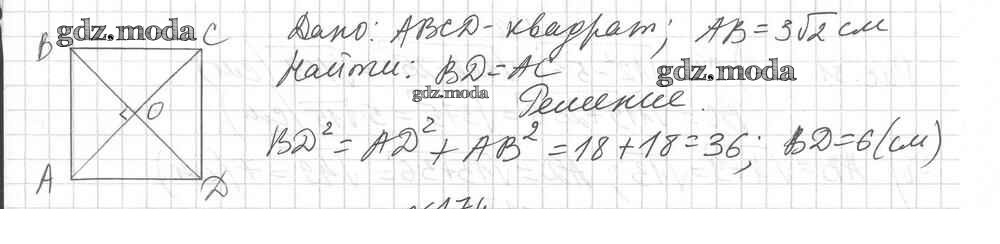 B gdz.moda C Дано: ABCD - квадрат; AB = 3√2 см
Найти: BD = AC gdz.moda
gdz.moda Решение.
O
BD² = AD² + AB² = 18 + 18 = 36; BD = 6 (см)
A D